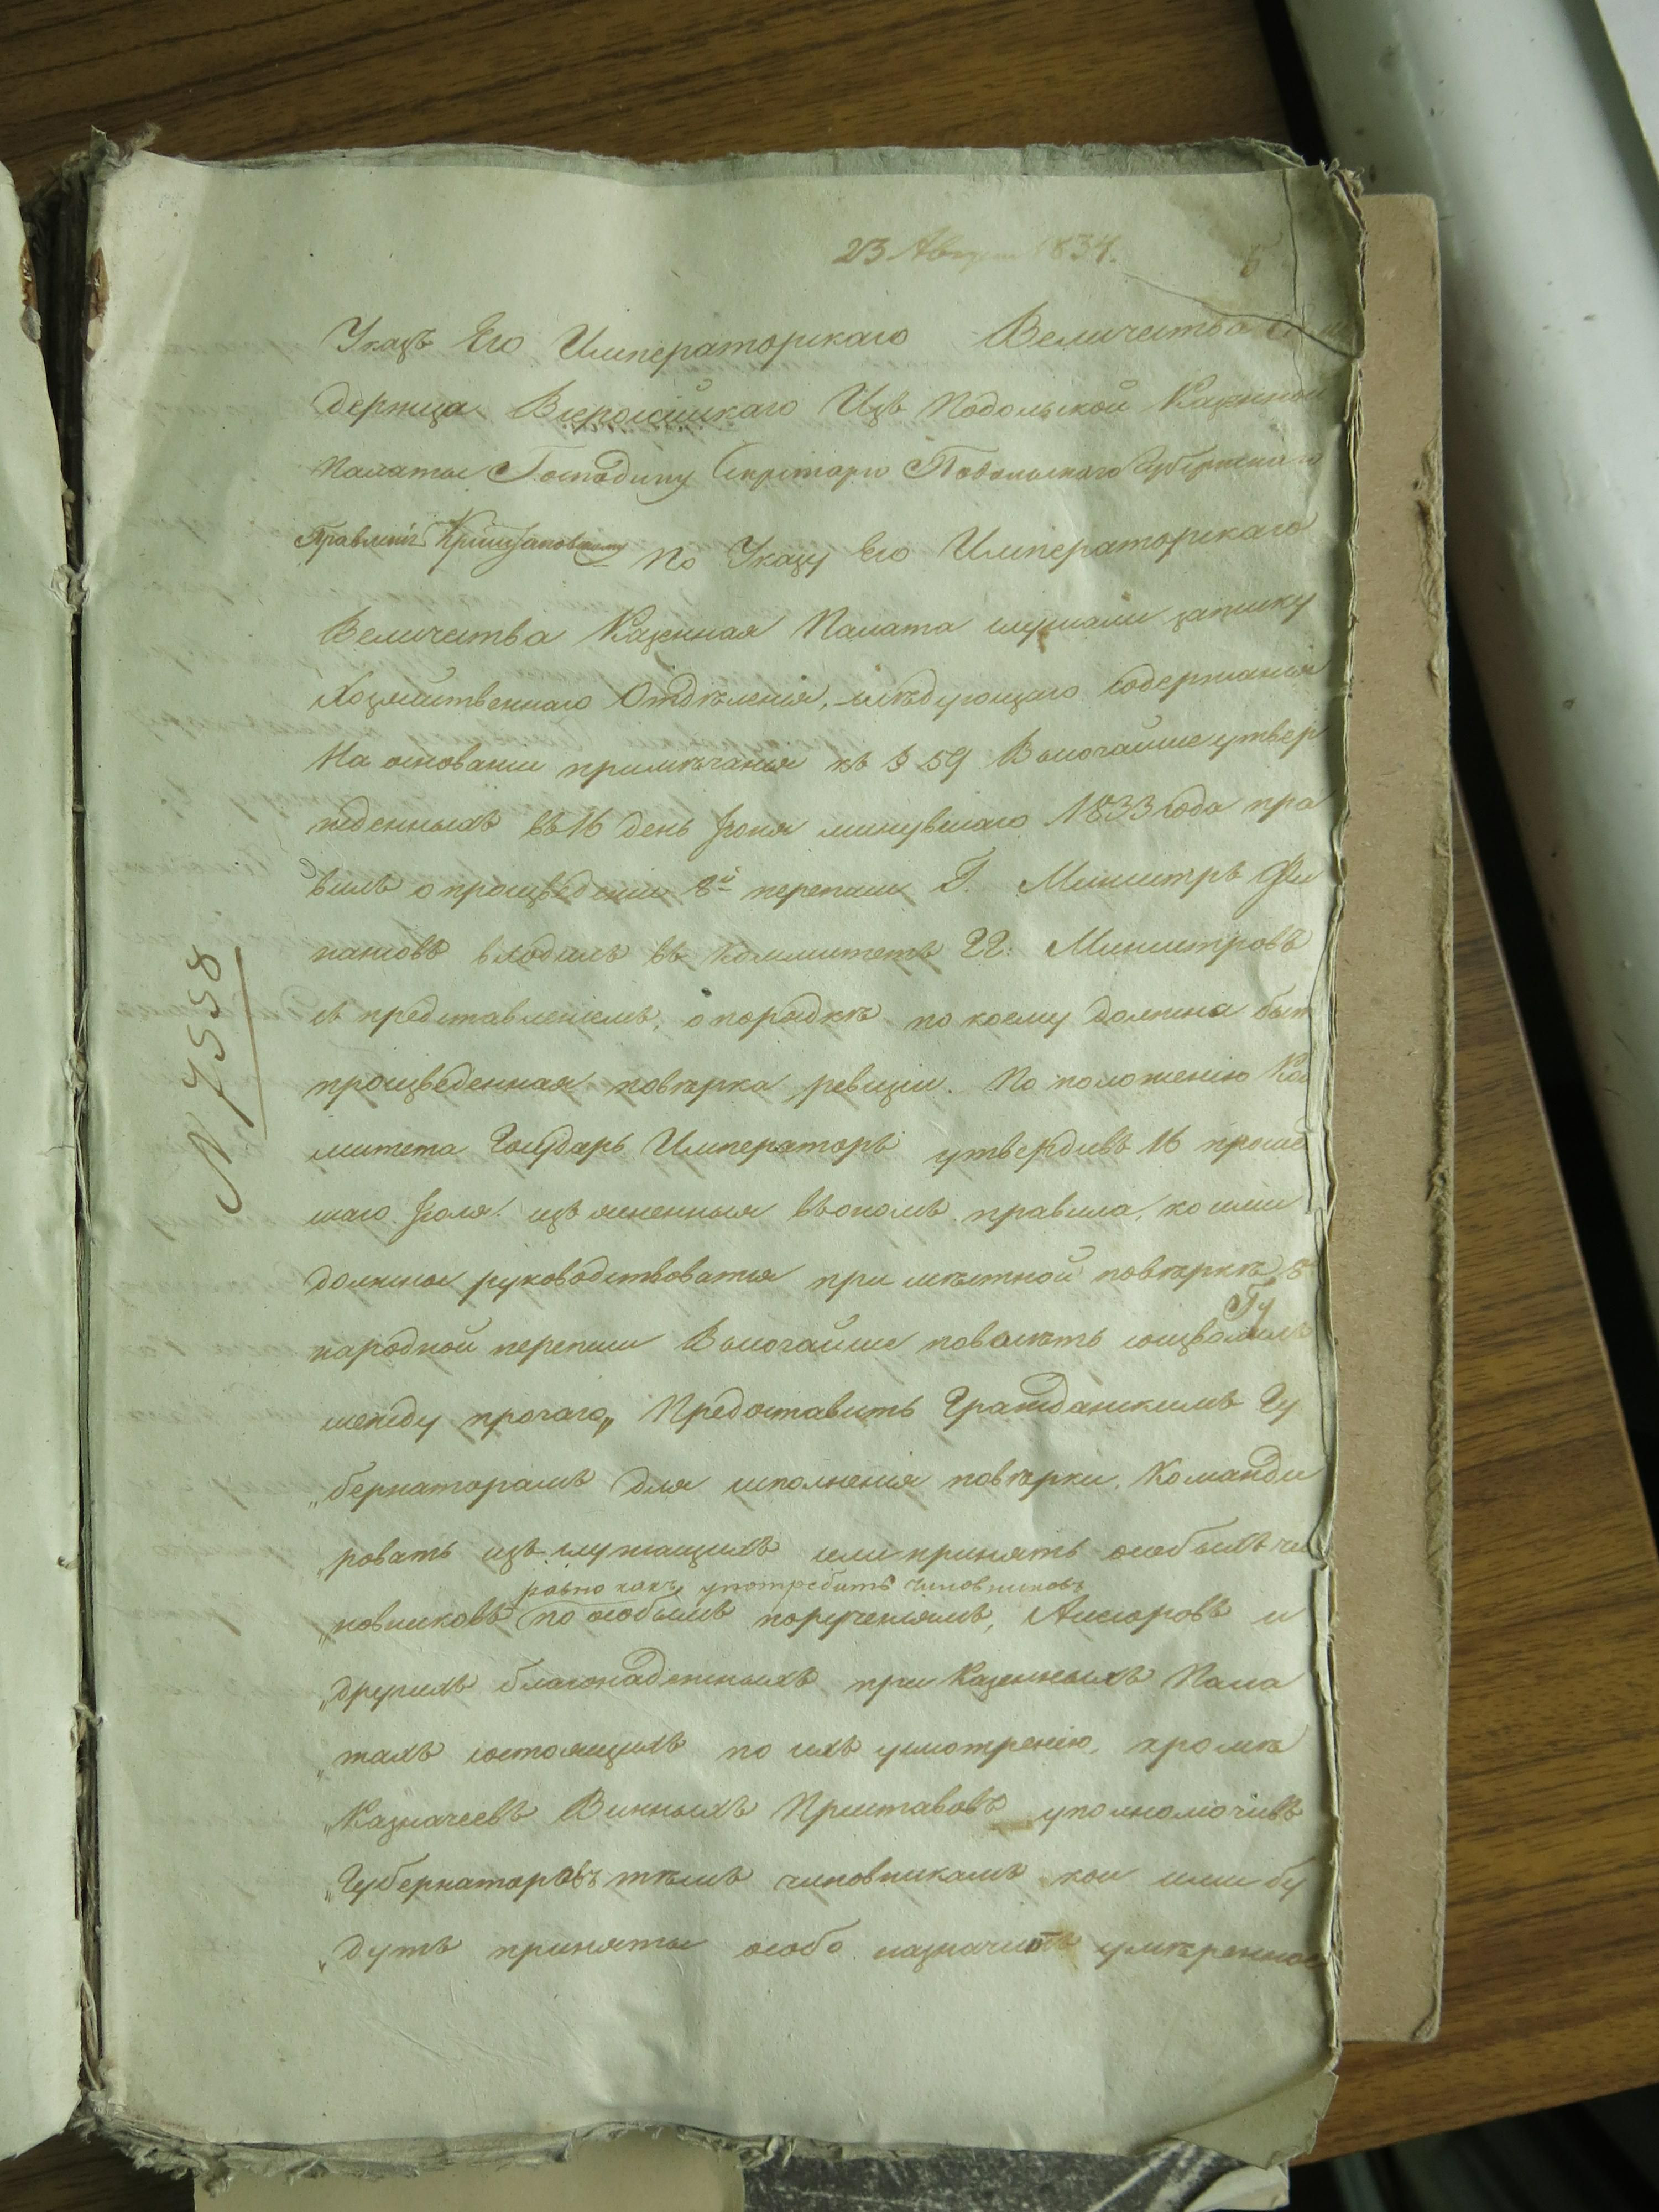 23 Августа 1834.
5
Указъ Его Императорскаго Величества Само
держца Всероссійскаго Изъ Подольской Казенной
Палаты Господину Секретарю Подольскаго Губернскаго
Правленія Кришзановскому По Указу Его Императорскаго
Величества Казенная Палата слушали записку
Хозяйственнаго Отдѣленія, слѣдующаго содержанія
На основаніи примѣчанія къ § 59 Высочайше утвер
жденныхъ въ 16 день Іюня минувшаго 1833 года пра
вилъ о произведеніи 8й переписи Г. Министръ Фи
нансовъ входилъ въ Коммитетъ ГГ: Министровъ
съ представленіемъ, о порядкѣ по коему должна быть
произведенная повѣрка ревизіи. По положенію Ком
митета Государь Императоръ утвердивъ 16 прошед
шаго Іюля изъясненныя въ ономъ правила, коими
должны руководствоваться при мѣстной повѣркѣ 8й
народной переписи Высочайше повелѣть соизволилъ
между прочаго „Предоставить Гражданскимъ Гу
„бернаторамъ для исполненія повѣрки, Команди
„ровать изъ служащихъ или принять особыхъ чи
равно какъ употребить чиновниковъ
„новниковъ по особымъ порученіямъ, Ассесоровъ и
„другихъ благонадежныхъ при Казенныхъ Пала
„тахъ состоящихъ по ихъ усмотрѣнію, кромѣ
„Казначеевъ Винныхъ Приставовъ уполномочивъ
„Губернаторовъ тѣмъ чиновникамъ кои ими бу
„дутъ приняты особо назначить умѣренное
N 7558